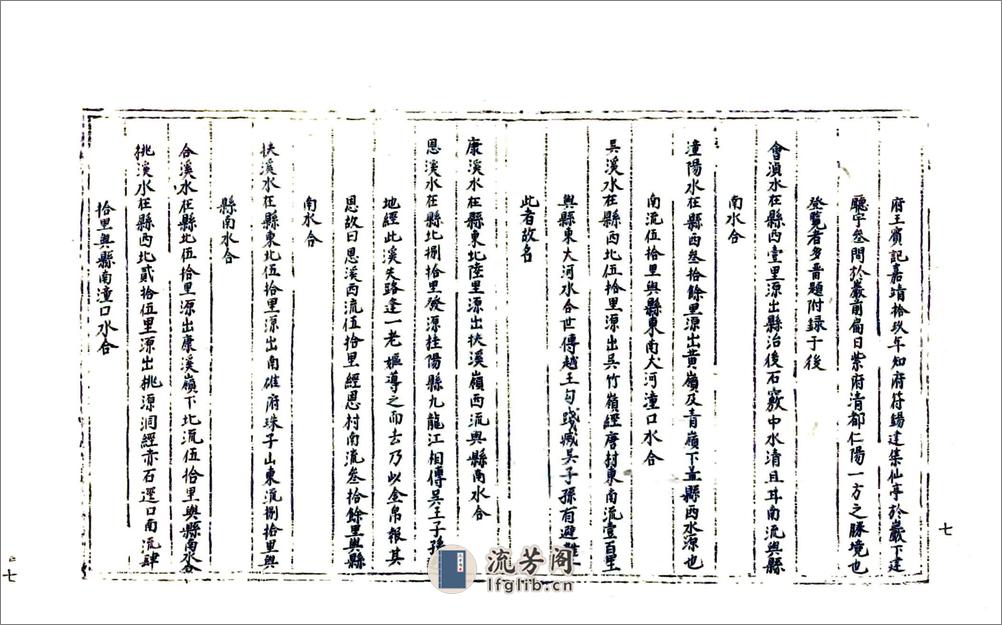 府王賓記嘉靖拾玖年知府符錫建集仙亭於巖下建
廳宇叁間於巖前扁曰紫府清都仁陽一方之勝境也
登覽者多畱題附録于後
會湞水在縣西壹里源出縣治後石竅中水清且耳南流與縣
南水合
潼陽水在縣西叁拾餘里源出黄嶺及青嶺下盖縣西水源也
南流伍拾里與縣東南大河潼口水合
吴溪水在縣西北伍拾里源出吴竹嶺經唐村東南流壹百里
與縣東大河水合世傳越王勾踐臧吴子孫有避難
此者故名
康溪水在縣東北陸里源出扶溪嶺西流與縣南水合
恩溪水在縣北捌拾里發源桂陽縣九龍江相傳吴王子孫
地經此溪失路逢一老嫗導之而去乃以金帛報其
恩故曰恩溪西流伍拾里經恩村南流叁拾餘里與縣
南水合
扶溪水在縣東北伍拾里源出南雄府珠子山東流捌拾里與
縣南水合
合溪水在縣北伍拾里源出康溪嶺下北流伍拾里與縣南水合
桃溪水在縣西北貳拾伍里源出桃源洞經赤石逕口南流肆
拾里與縣南潼口水合
七
七
流芳阁
lfglib.cn